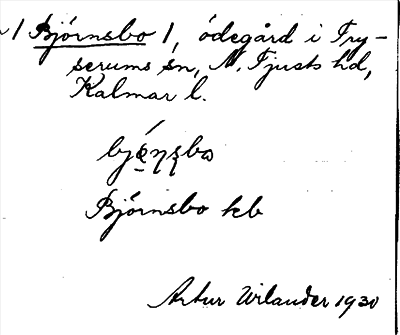 1 Björnsbo 1, ödegård i Try-
serums sn, N. Tjusts hd,
Kalmar l.
Björnsbo kb
Artur Wilander 1930